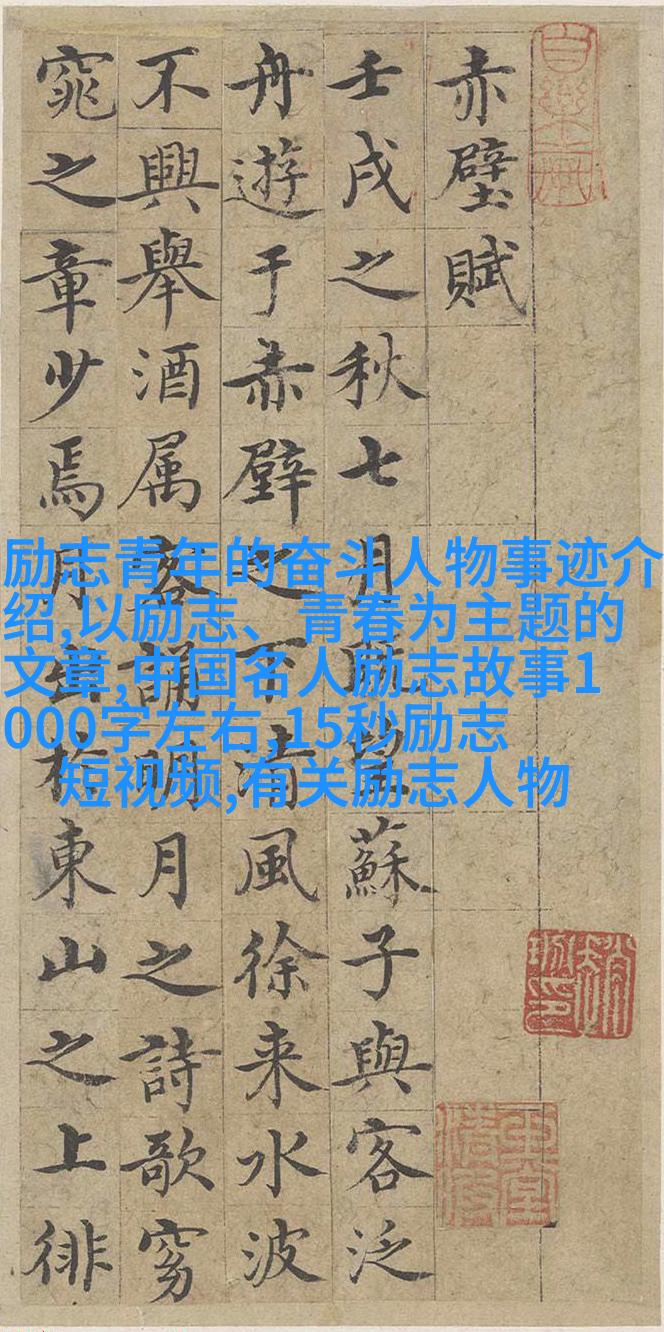 赤壁賦
壬戌之秋七月既望蘇子與客泛
舟遊于赤壁之下清風徐来水波
不興舉酒属客誦明月之詩歌窈
窕之章少焉月出於東山之上徘
励志青年的奋斗人物事迹介
绍,以励志、青春为主题的
文章,中国名人励志故事1
000字左右,15秒励志
短视频,有关励志人物